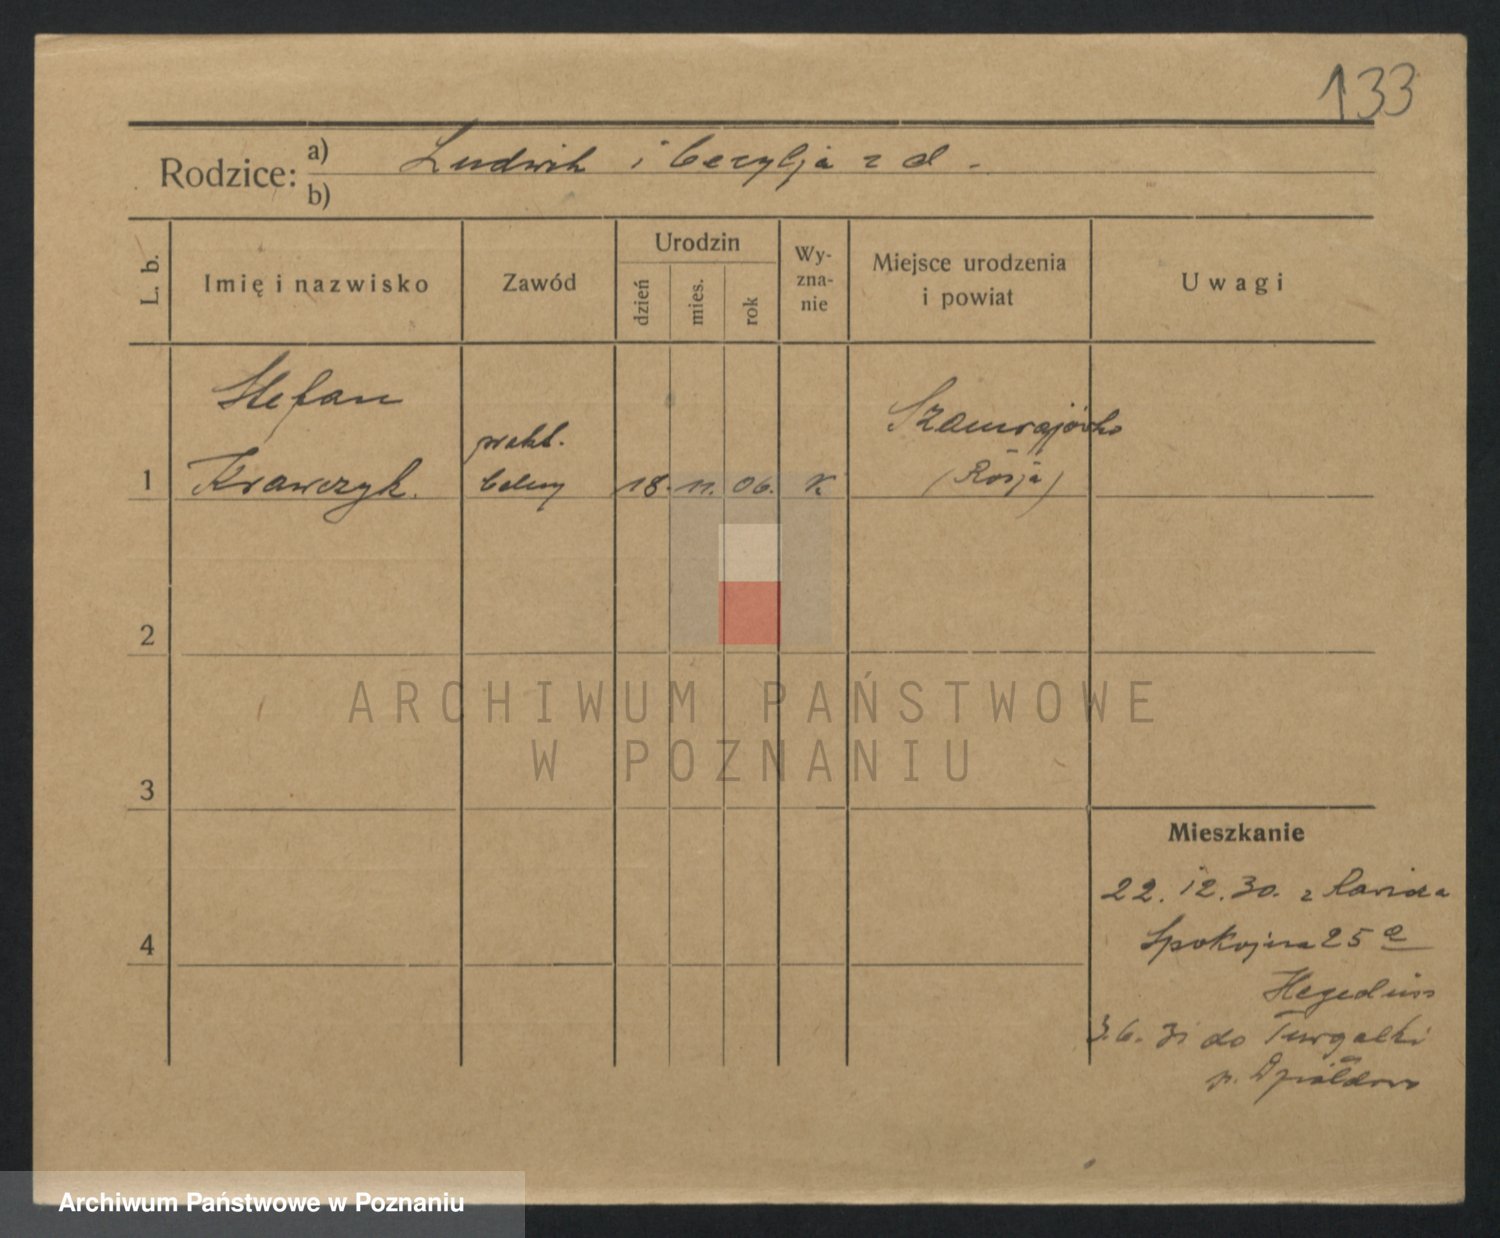 133
Rodzice: a) Ludwik i Cecylja z d.
b)
L. b.
Imię i nazwisko
Zawód
Urodzin
dzień
mies.
rok
Wy-
zna-
nie
Miejsce urodzenia
i powiat
Uwagi
Stefan
Krawczyk.
prakt.
Celny
18. 11. 06.
K
(Rosja)
1
2
3
4
Mieszkanie
22. 12. 30. z Rawicza
Spokojna 25a
Hegedüs
3.6.31 do
p. Działdowo
ARCHIWUM PAŃSTWOWE
W POZNANIU
Archiwum Państwowe w Poznaniu